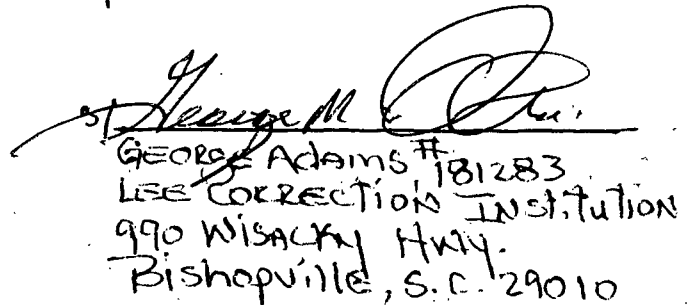 s/ George M
GEORGE AdAMS # 181283
LEE CORRECTION INStitUTION
990 WISACKY HWY.
Bishopville, S.C. 29010